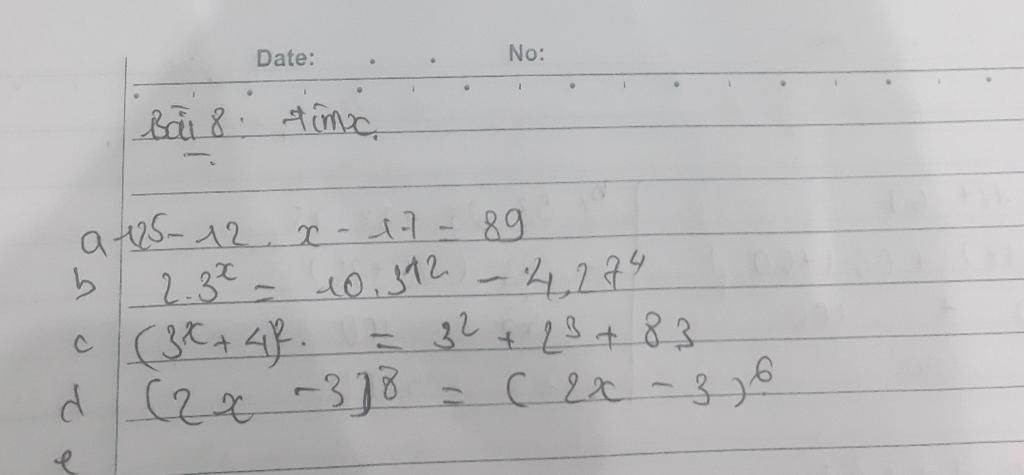 Date: . . No:
Bài 8: tìm x.
a 125 - 12 . x - 17 = 89
b 2.3^x = 10.3^12 - 4,27^4
c (3^x + 4)^2. = 3^2 + 2^3 + 83
d (2x - 3)^8 = (2x - 3)^6
e